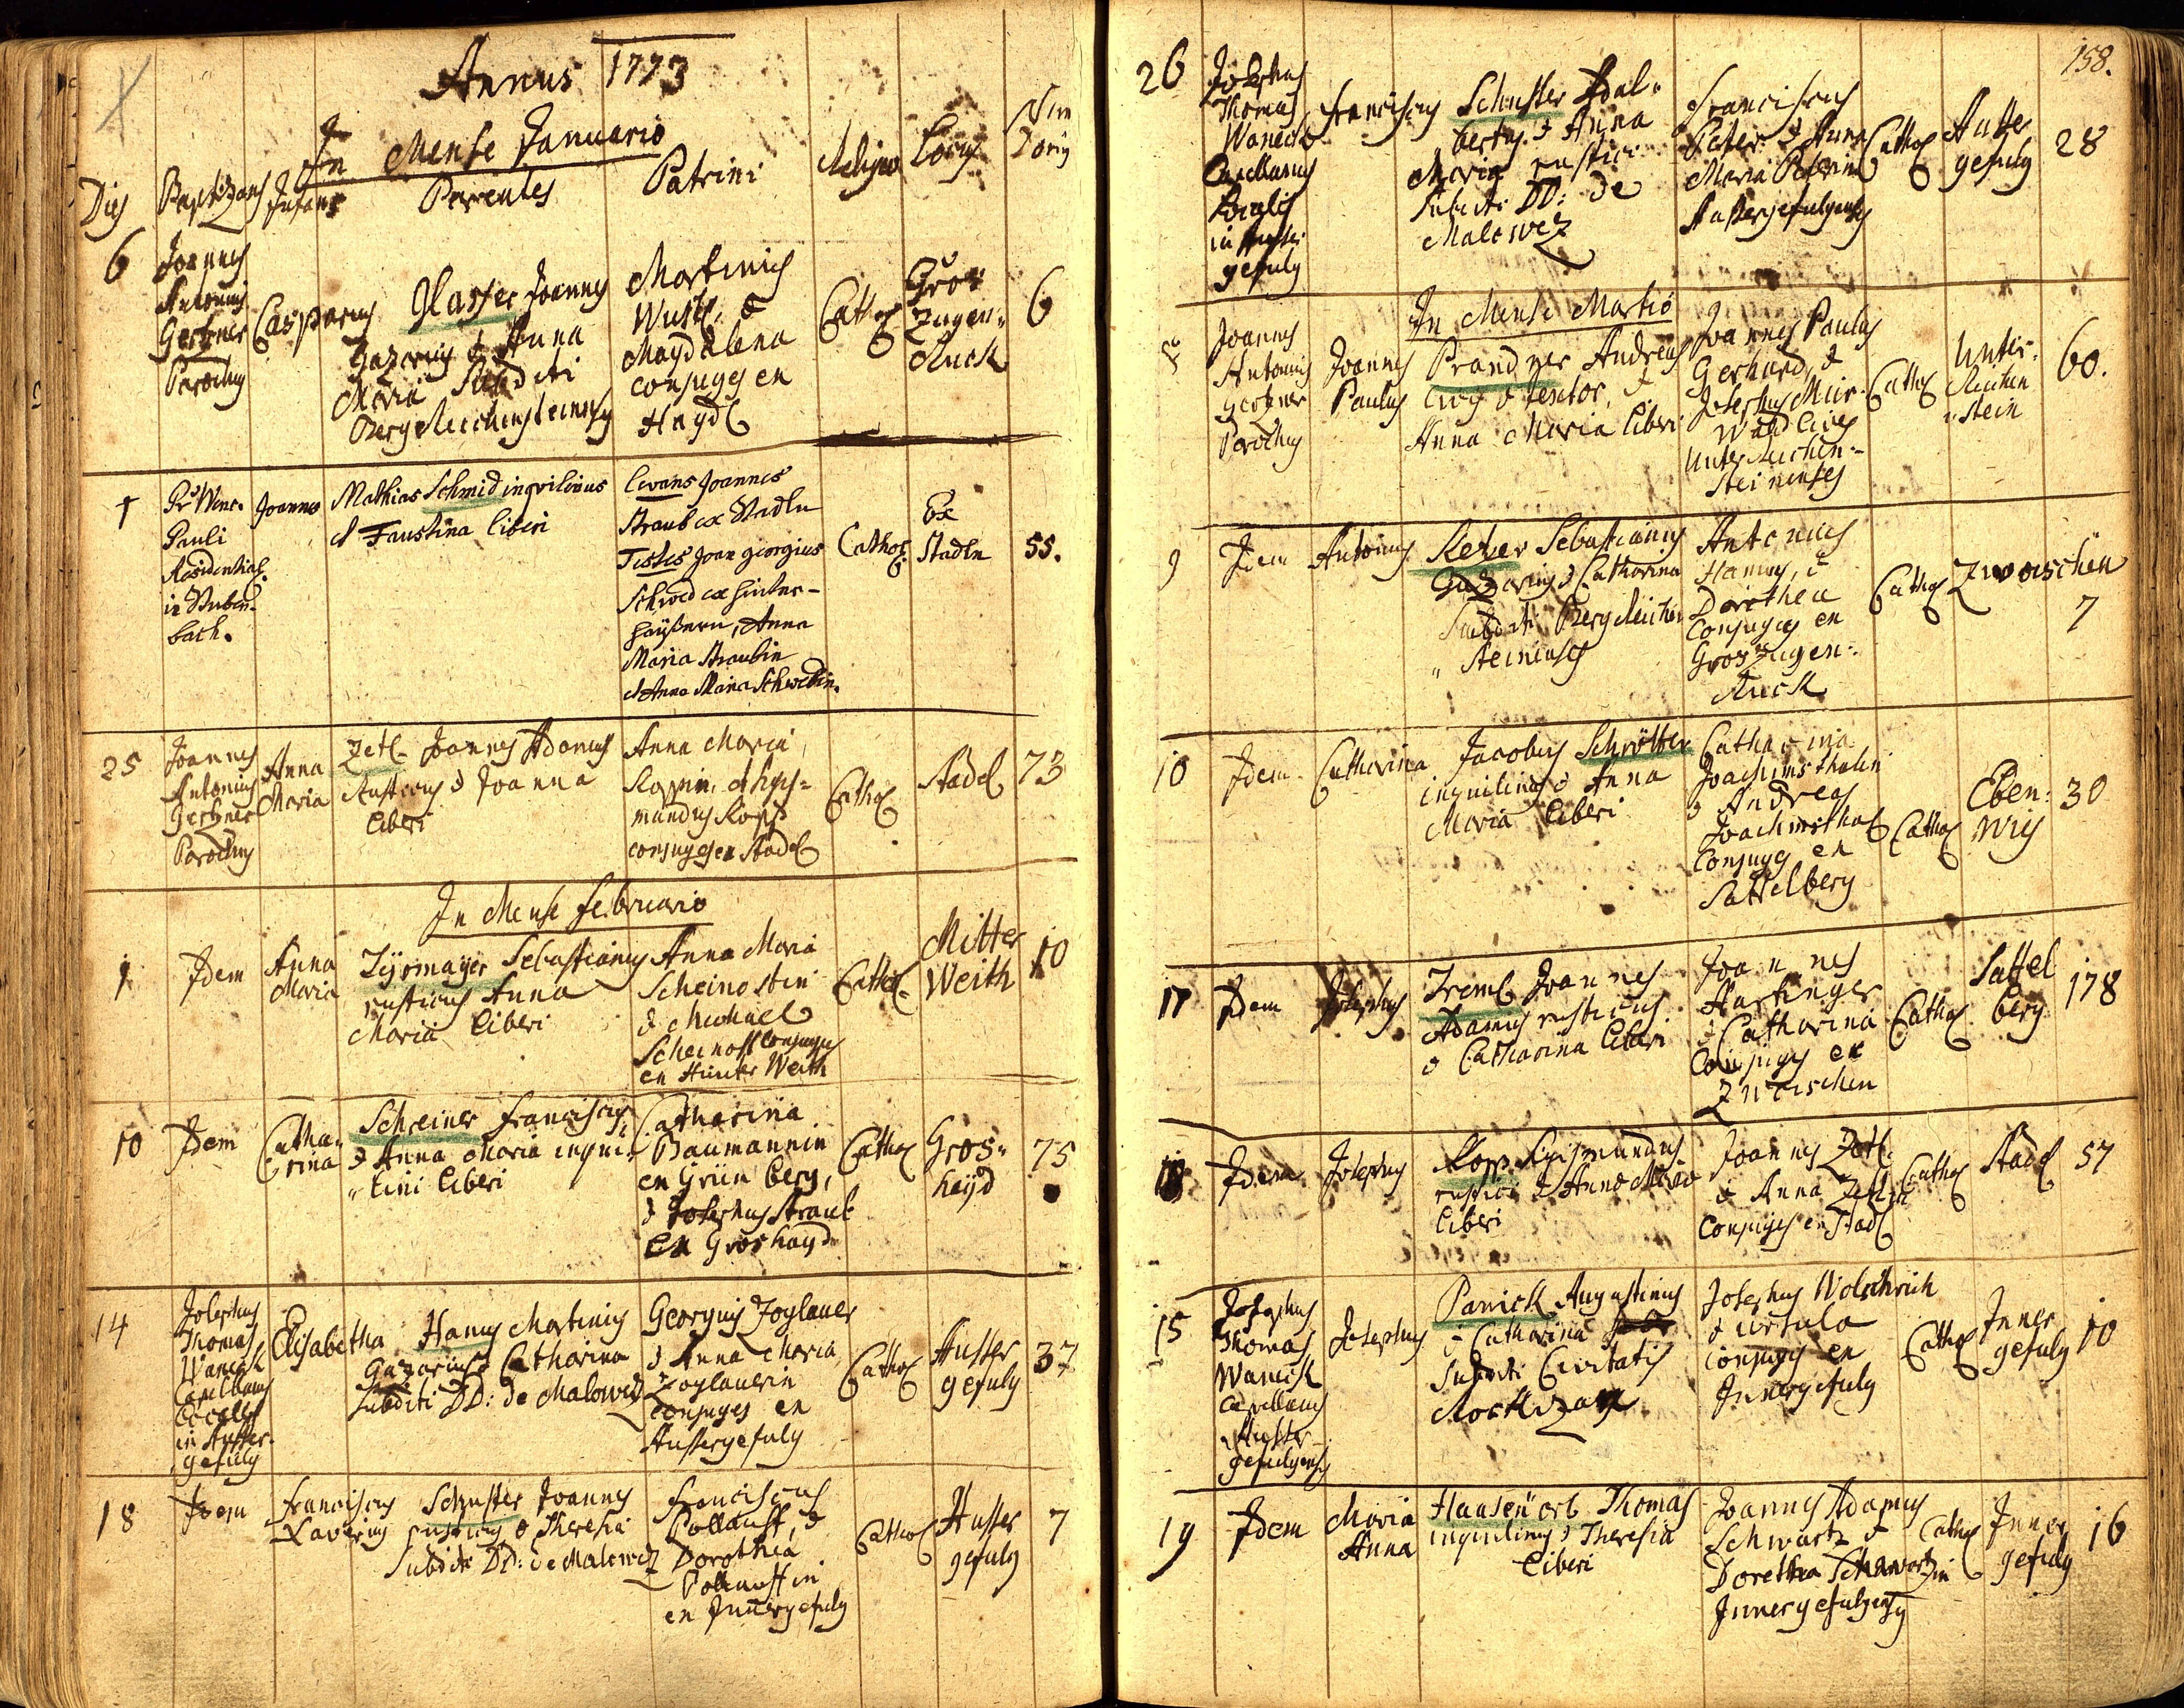 Annus 1773
In Mense Januario
Dies Baptizans Infans Parentes Patrini Religio Locus Num Domus
6
Joannes
Antonius
Gerzner
Parochus
Casparus
Glasser Joannes
Gazarius & Anna
Maria Subditi
Bergreichensteinensis
Martinus
Wusti, &
Magdalena
conjuges ex
Haydl
Cathol
Gros
Zugen-
Ruck
6
Pr Wenc.
Pauli
Residential.
in Stuben-
bach.
Joannes
Mathias Schmid inquilinus
& Faustina liberi
Levans Joannes
Straub ex Stadln
Testes Joan georgius
Schwed ex hinter-
haüsern, Anna
Maria Straubin
& Anna Maria Schwedin.
Cathol:
Ex
Stadln
55.
25
Joannes
Antonius
Gerzner
Parochus
Anna
Maria
Zetl Joannes Adamus
Rusticus & Joanna
liberi
Anna Maria
Koppin, & Sigis-
mundus Kopp
conjuges ex Stadl
Cathol
Stadl
73
In Mense Februario
9
Idem
Anna
Maria
Zyrmayer Sebastianus
rusticus Anna
Maria liberi
Anna Maria
Scheinostin
& Michael
Scheinost Conjuges
ex Hinter Weith
Cathol.
Mitter
Weith
10
10
Idem
Catha-
rina
Schreiner Franciscus,
& Anna Maria inqui-
lini liberi
Catharina
Baumannin
ex Grün berg,
& Josephus Straub
Ex Groshayd
Cathol
Gros-
heyd
75
14
Josephus
Thomas
Waneck
Capellanus
Localis
in Ausser-
gefild
Elisabetha
Hanus Martinus
Gazarius & Catharina
subditi DD: de Malowez
Georgius Zoglauer
& Anna Maria
Zoglauerin
conjuges ex
Aussergefuld
Cathol
Ausser
gefuld
37
18
Idem
Franciscus
Xaverius
Schuster Joannes
rusticus & Theresia
Subditi DD: de Malowez
Franciscus
Pollauf, &
Dorothea
Pollaufin
ex Innergefuld
Cathol
Ausser
gefuld
7
158.
26
Josephus
Thomas
Waneck
Capellanus
Localis
in Ausser
gefuld
Franciscus
Schuster Adal-
bertus & Anna
Maria rustici
Subditi DD: de
Malowez
Franciscus
Peter & Anna
Maria Peterin
Aussergefuldenses
Cathol
Ausser
gefuld
28
In Mense Martio
Joannes
Antonius
Gerzner
Parochus
Joannes
Paulus
Prandner Andreas
Civis & textor, &
Anna Maria liberi
Joannes Paulus
Gerhard, &
Josephus Mur
Wald Cives
Unter Reichen-
steinenses
Cathol
Unter-
Reichen
stein
60.
9
Idem
Antonius
Keter Sebastianus
Gazarius & Catharina
Subditi Bergreichen
steinenses
Antonius
Hanus, &
Dorothea
Conjuges ex
Gros Zugen-
Ruck
Cathol
Zwoischen
7
10
Idem
Catharina
Jacobus Schrötter
inquilinus & Anna
Maria liberi
Catharina
Joachimsthalin
& Andreas
Joachimsthal
Conjuges ex
Sattelberg
Cathol
Eben:
Wis
30
17
Idem
Josephus
Treml Joannes
Adamus rusticus
& Catharina liberi
Joannes
Hartinger
& Catharina
Conjuges ex
Zwoischen
Cathol
Sattel
berg
178
Idem
Josephus
Kopp Sigismundus
rustici & Anna Maria
liberi
Joannes Zetl
& Anna Zetlin
Conjuges ex Stadl
Cathol
Stadl
57
15
Josephus
Thomas
Waneck
Capellanus
Ausser
gefuldensis
Josephus
Panick Augustinus
& Catharina
Subditi Civitatis
Josephus Wolschrich
& Ursula
conjuges ex
Innergefuld
Cathol
Inner
gefuld
10
19
Idem
Maria
Anna
Haasenörl Thomas
inquilinus & Theresia
liberi
Joannes Adamus
Schwartz &
Dorethea Schwartzin
Innergefuldenses
Cathol
Inner
gefuld
16